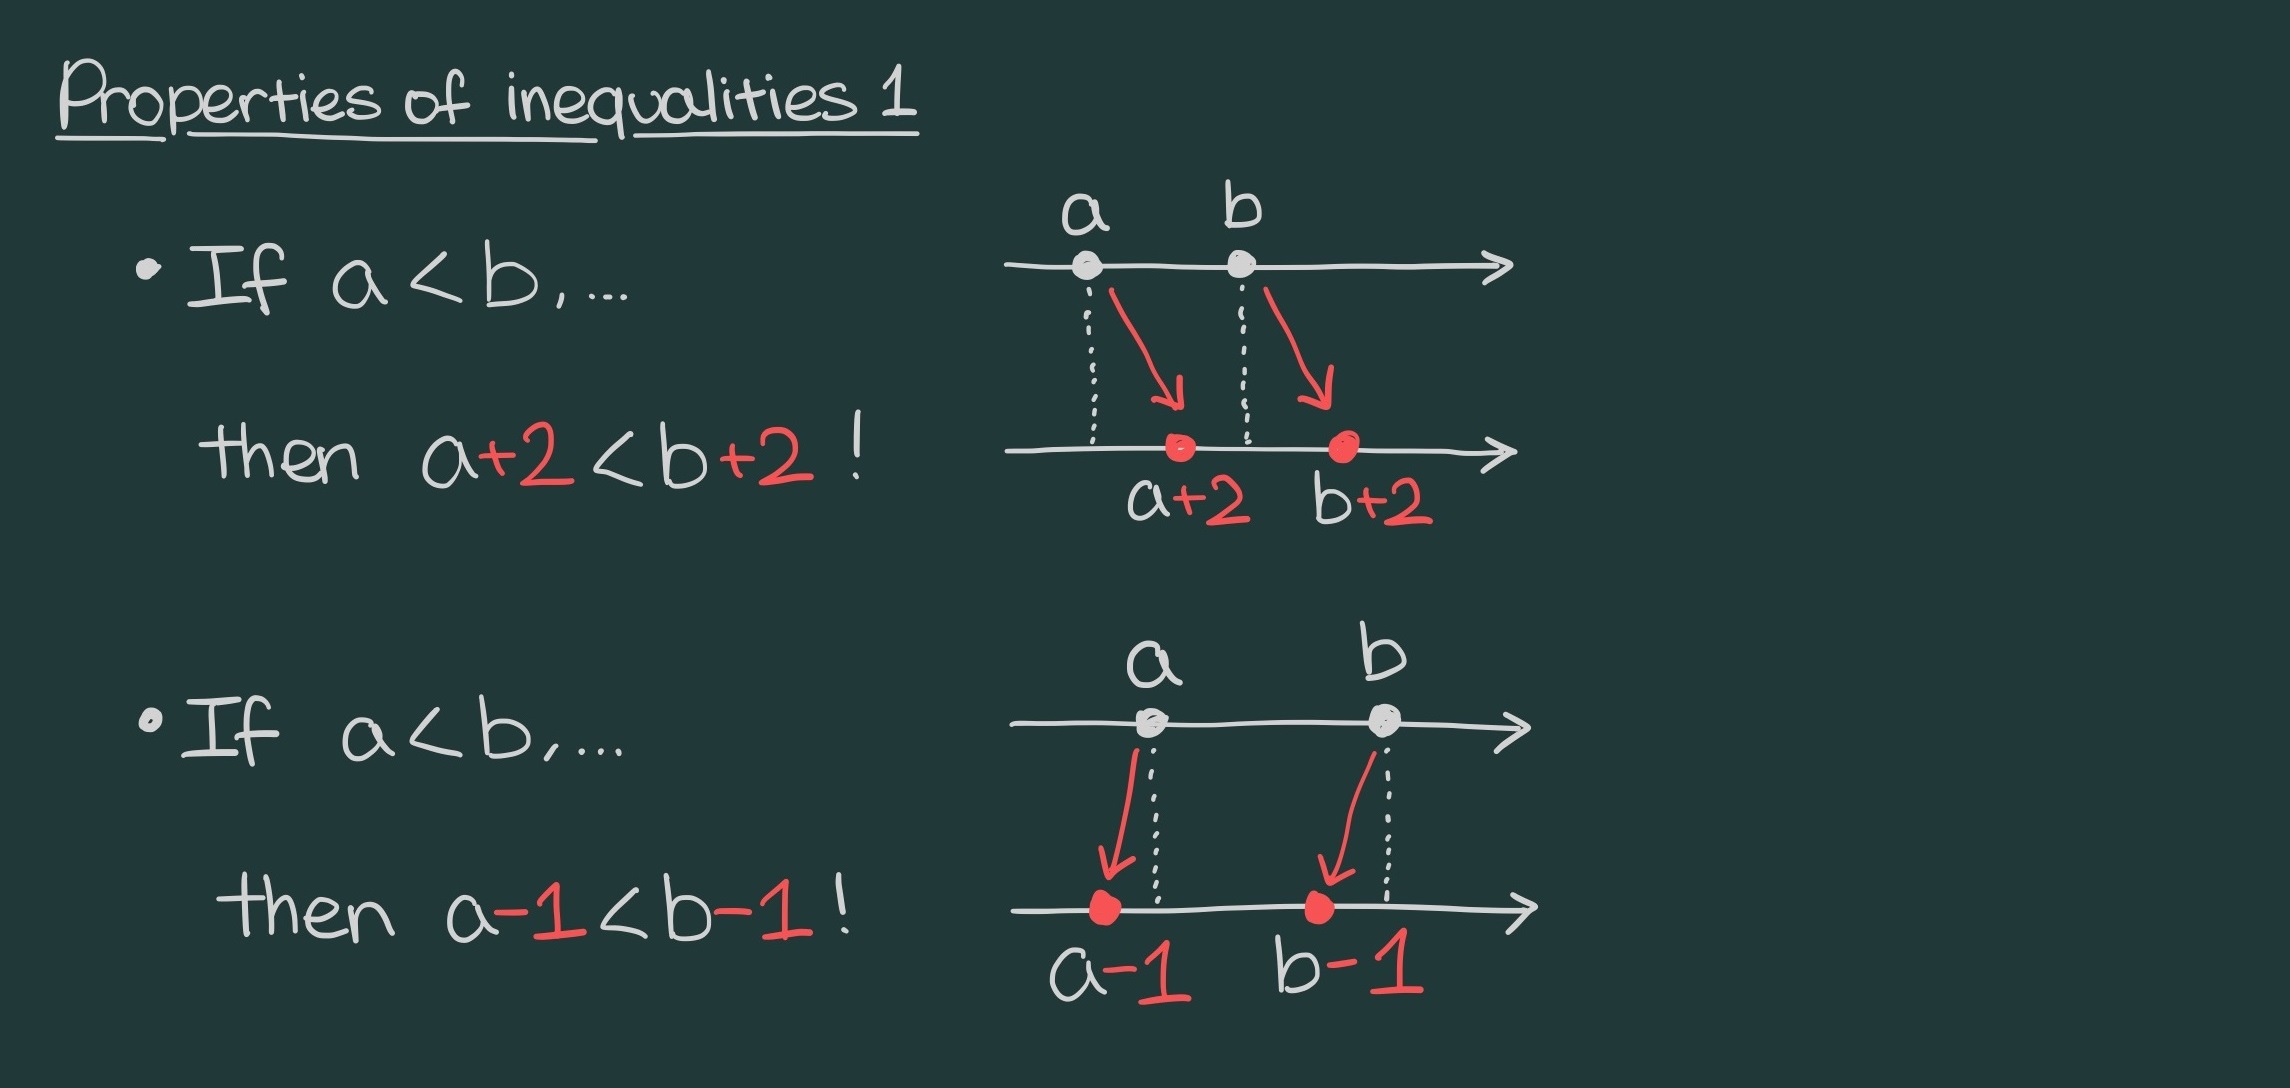 Properties of inequalities 1
a b
• If a < b, ...
then a+2 < b+2 !
a+2 b+2
a b
• If a < b, ...
then a-1 < b-1 !
a-1 b-1